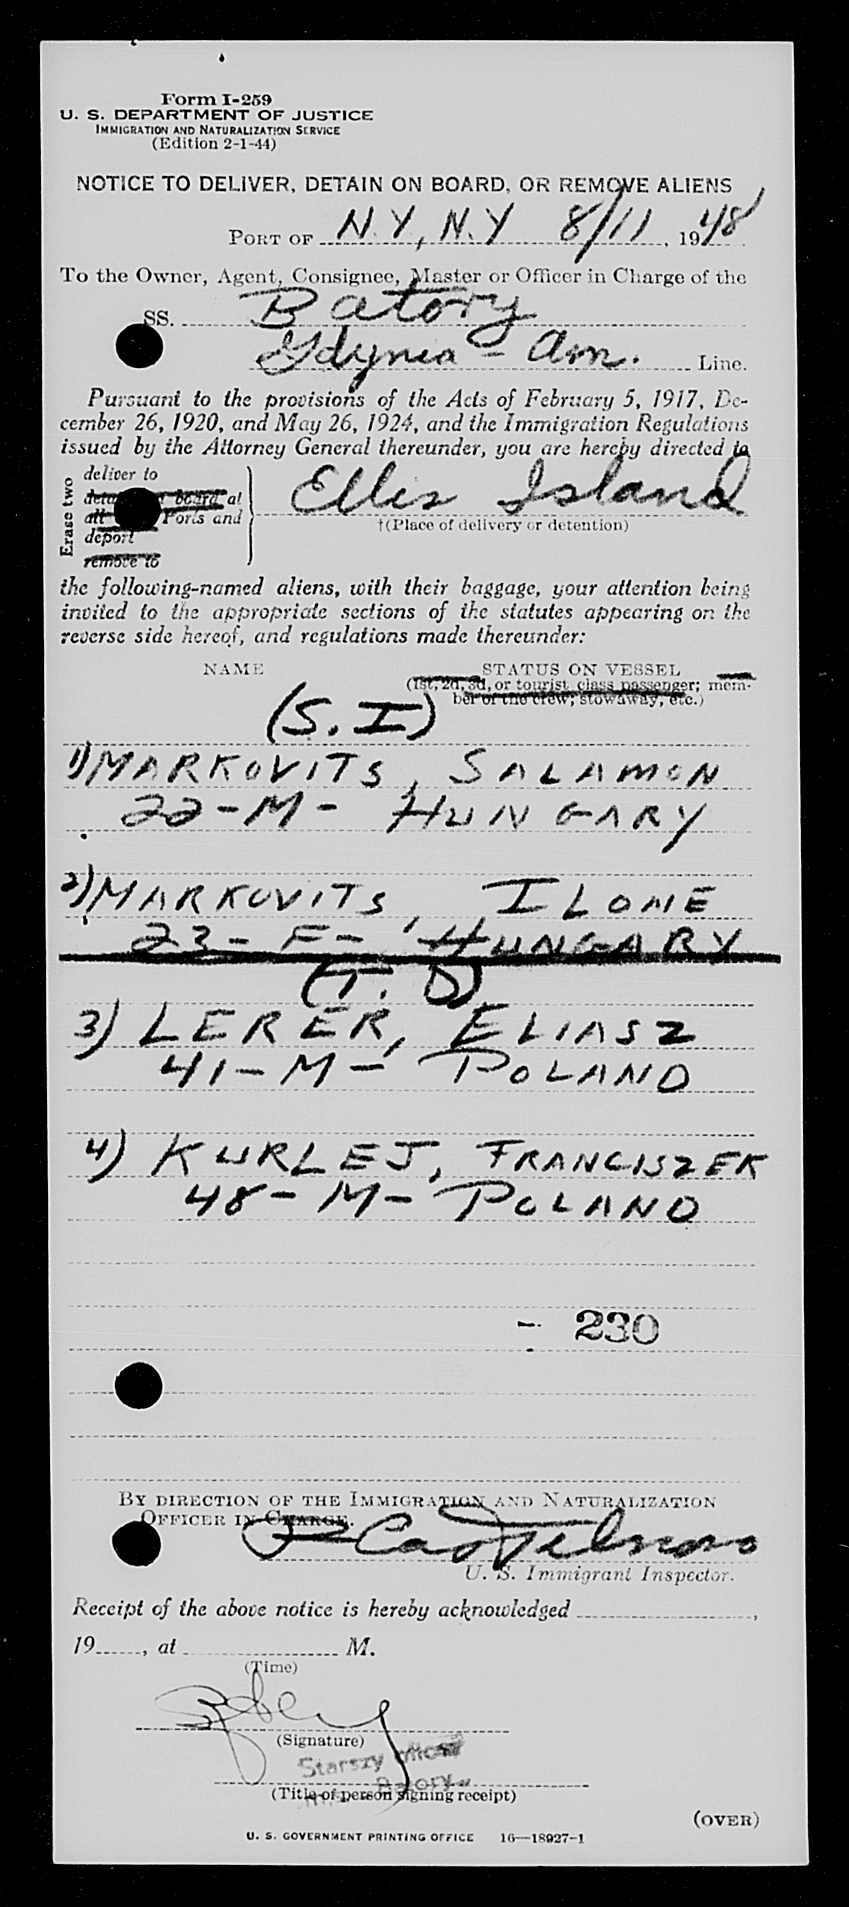 Form I-259
U. S. DEPARTMENT OF JUSTICE
IMMIGRATION AND NATURALIZATION SERVICE
(Edition 2-1-44)
NOTICE TO DELIVER, DETAIN ON BOARD, OR REMOVE ALIENS
PORT OF N.Y., N.Y 8/11, 1948
To the Owner, Agent, Consignee, Master or Officer in Charge of the
SS. Batory
Gdynia - Am. Line.
Pursuant to the provisions of the Acts of February 5, 1917, De-
cember 26, 1920, and May 26, 1924, and the Immigration Regulations
issued by the Attorney General thereunder, you are hereby directed to
Erase two
deliver to
board at
all Ports and
deport
remove to
Ellis Island
†(Place of delivery or detention)
the following-named aliens, with their baggage, your attention being
invited to the appropriate sections of the statutes appearing on the
reverse side hereof, and regulations made thereunder:
NAME STATUS ON VESSEL
(1st, 2d, 3d, or tourist class passenger; mem-
ber of the crew; stowaway, etc.)
(S. I)
1) MARKOVITS, SALAMON
22-M- HUNGARY
2) MARKOVITS, ILONE
23-F- HUNGARY
(T. D)
3) LERER, ELIASZ
41-M- POLAND
4) KURLEJ, FRANCISZEK
48-M- POLAND
- 230
BY DIRECTION OF THE IMMIGRATION AND NATURALIZATION
OFFICER IN CHARGE.
U. S. Immigrant Inspector.
Receipt of the above notice is hereby acknowledged ,
19 , at M.
(Time)
(Signature)
Starszy oficer
Batory
(Title of person signing receipt)
(OVER)
U. S. GOVERNMENT PRINTING OFFICE 16—18927-1